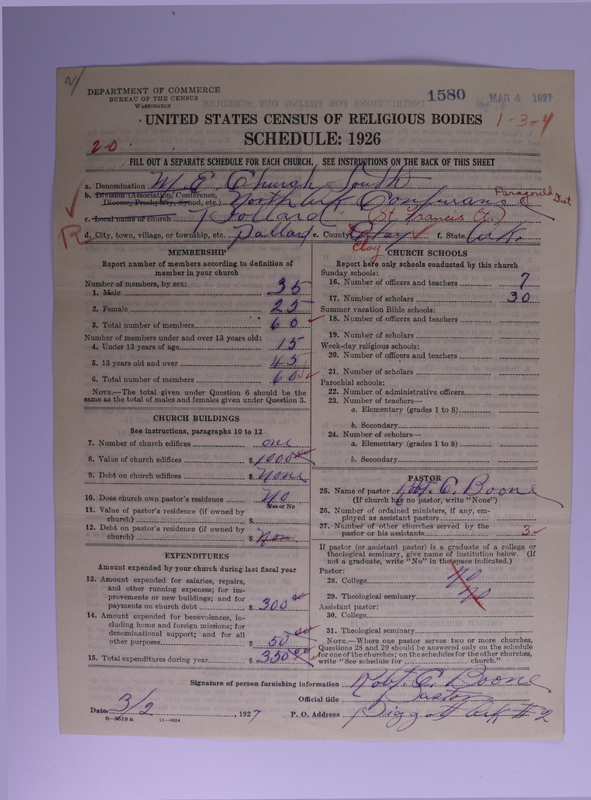 DEPARTMENT OF COMMERCE
BUREAU OF THE CENSUS
WASHINGTON
1580 MAR 4 1927
UNITED STATES CENSUS OF RELIGIOUS BODIES
1-3-4
SCHEDULE: 1926
20
FILL OUT A SEPARATE SCHEDULE FOR EACH CHURCH. SEE INSTRUCTIONS ON THE BACK OF THIS SHEET
a. Denomination M. E. Church South
b. Division (Association, Conference, Diocese, Presbytery, Synod, etc.) North Ark Conference Paragould Dist
c. Local name of church Pollard (St. Francis Ct.)
d. City, town, village, or township, etc. Pollard e. County Clay f. State Ark.
Clay
MEMBERSHIP
Report number of members according to definition of
member in your church
Number of members, by sex:
1. Male 35
2. Female 25
3. Total number of members 60
Number of members under and over 13 years old:
4. Under 13 years of age 15
5. 13 years old and over 45
6. Total number of members 60
NOTE.—The total given under Question 6 should be the
same as the total of males and females given under Question 3.
CHURCH BUILDINGS
See instructions, paragraphs 10 to 12
7. Number of church edifices one
8. Value of church edifices $ 1000 00
9. Debt on church edifices $ None
10. Does church own pastor's residence No
Yes or No
11. Value of pastor's residence (if owned by
church) $
12. Debt on pastor's residence (if owned by
church) $ Non
EXPENDITURES
Amount expended by your church during last fiscal year
13. Amount expended for salaries, repairs,
and other running expenses; for im-
provements or new buildings; and for
payments on church debt $ 300 00
14. Amount expended for benevolences, in-
cluding home and foreign missions; for
denominational support; and for all
other purposes $ 50 00
15. Total expenditures during year $ 350 00
CHURCH SCHOOLS
Report here only schools conducted by this church
Sunday schools:
16. Number of officers and teachers 7
17. Number of scholars 30
Summer vacation Bible schools:
18. Number of officers and teachers
19. Number of scholars
Week-day religious schools:
20. Number of officers and teachers
21. Number of scholars
Parochial schools:
22. Number of administrative officers
23. Number of teachers—
a. Elementary (grades 1 to 8)
b. Secondary
24. Number of scholars—
a. Elementary (grades 1 to 8)
b. Secondary
PASTOR
25. Name of pastor Robt. C. Boone
(If church has no pastor, write "None")
26. Number of ordained ministers, if any, em-
ployed as assistant pastors
27. Number of other churches served by the
pastor or his assistants 3
If pastor (or assistant pastor) is a graduate of a college or
theological seminary, give name of institution below. (If
not a graduate, write "No" in the space indicated.)
Pastor:
28. College No
29. Theological seminary No
Assistant pastor:
30. College
31. Theological seminary
NOTE.—Where one pastor serves two or more churches,
Questions 28 and 29 should be answered only on the schedule
for one of the churches; on the schedules for the other churches,
write "See schedule for church."
Signature of person furnishing information Robt. C. Boone
Official title Pastor
Date 3/2, 1927 P. O. Address Piggott Ark # 2
8-5518a 11-9034